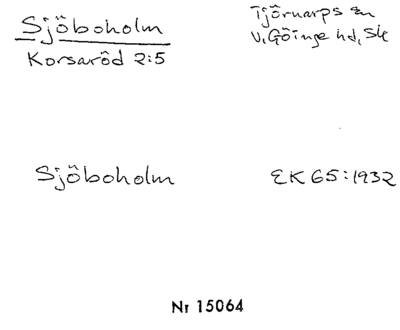 Sjöboholm
Tjörnarps sn
V. Göinge hd, Sk
Korsaröd 2:5
Sjöboholm
EK 65:1932
Nr 15064